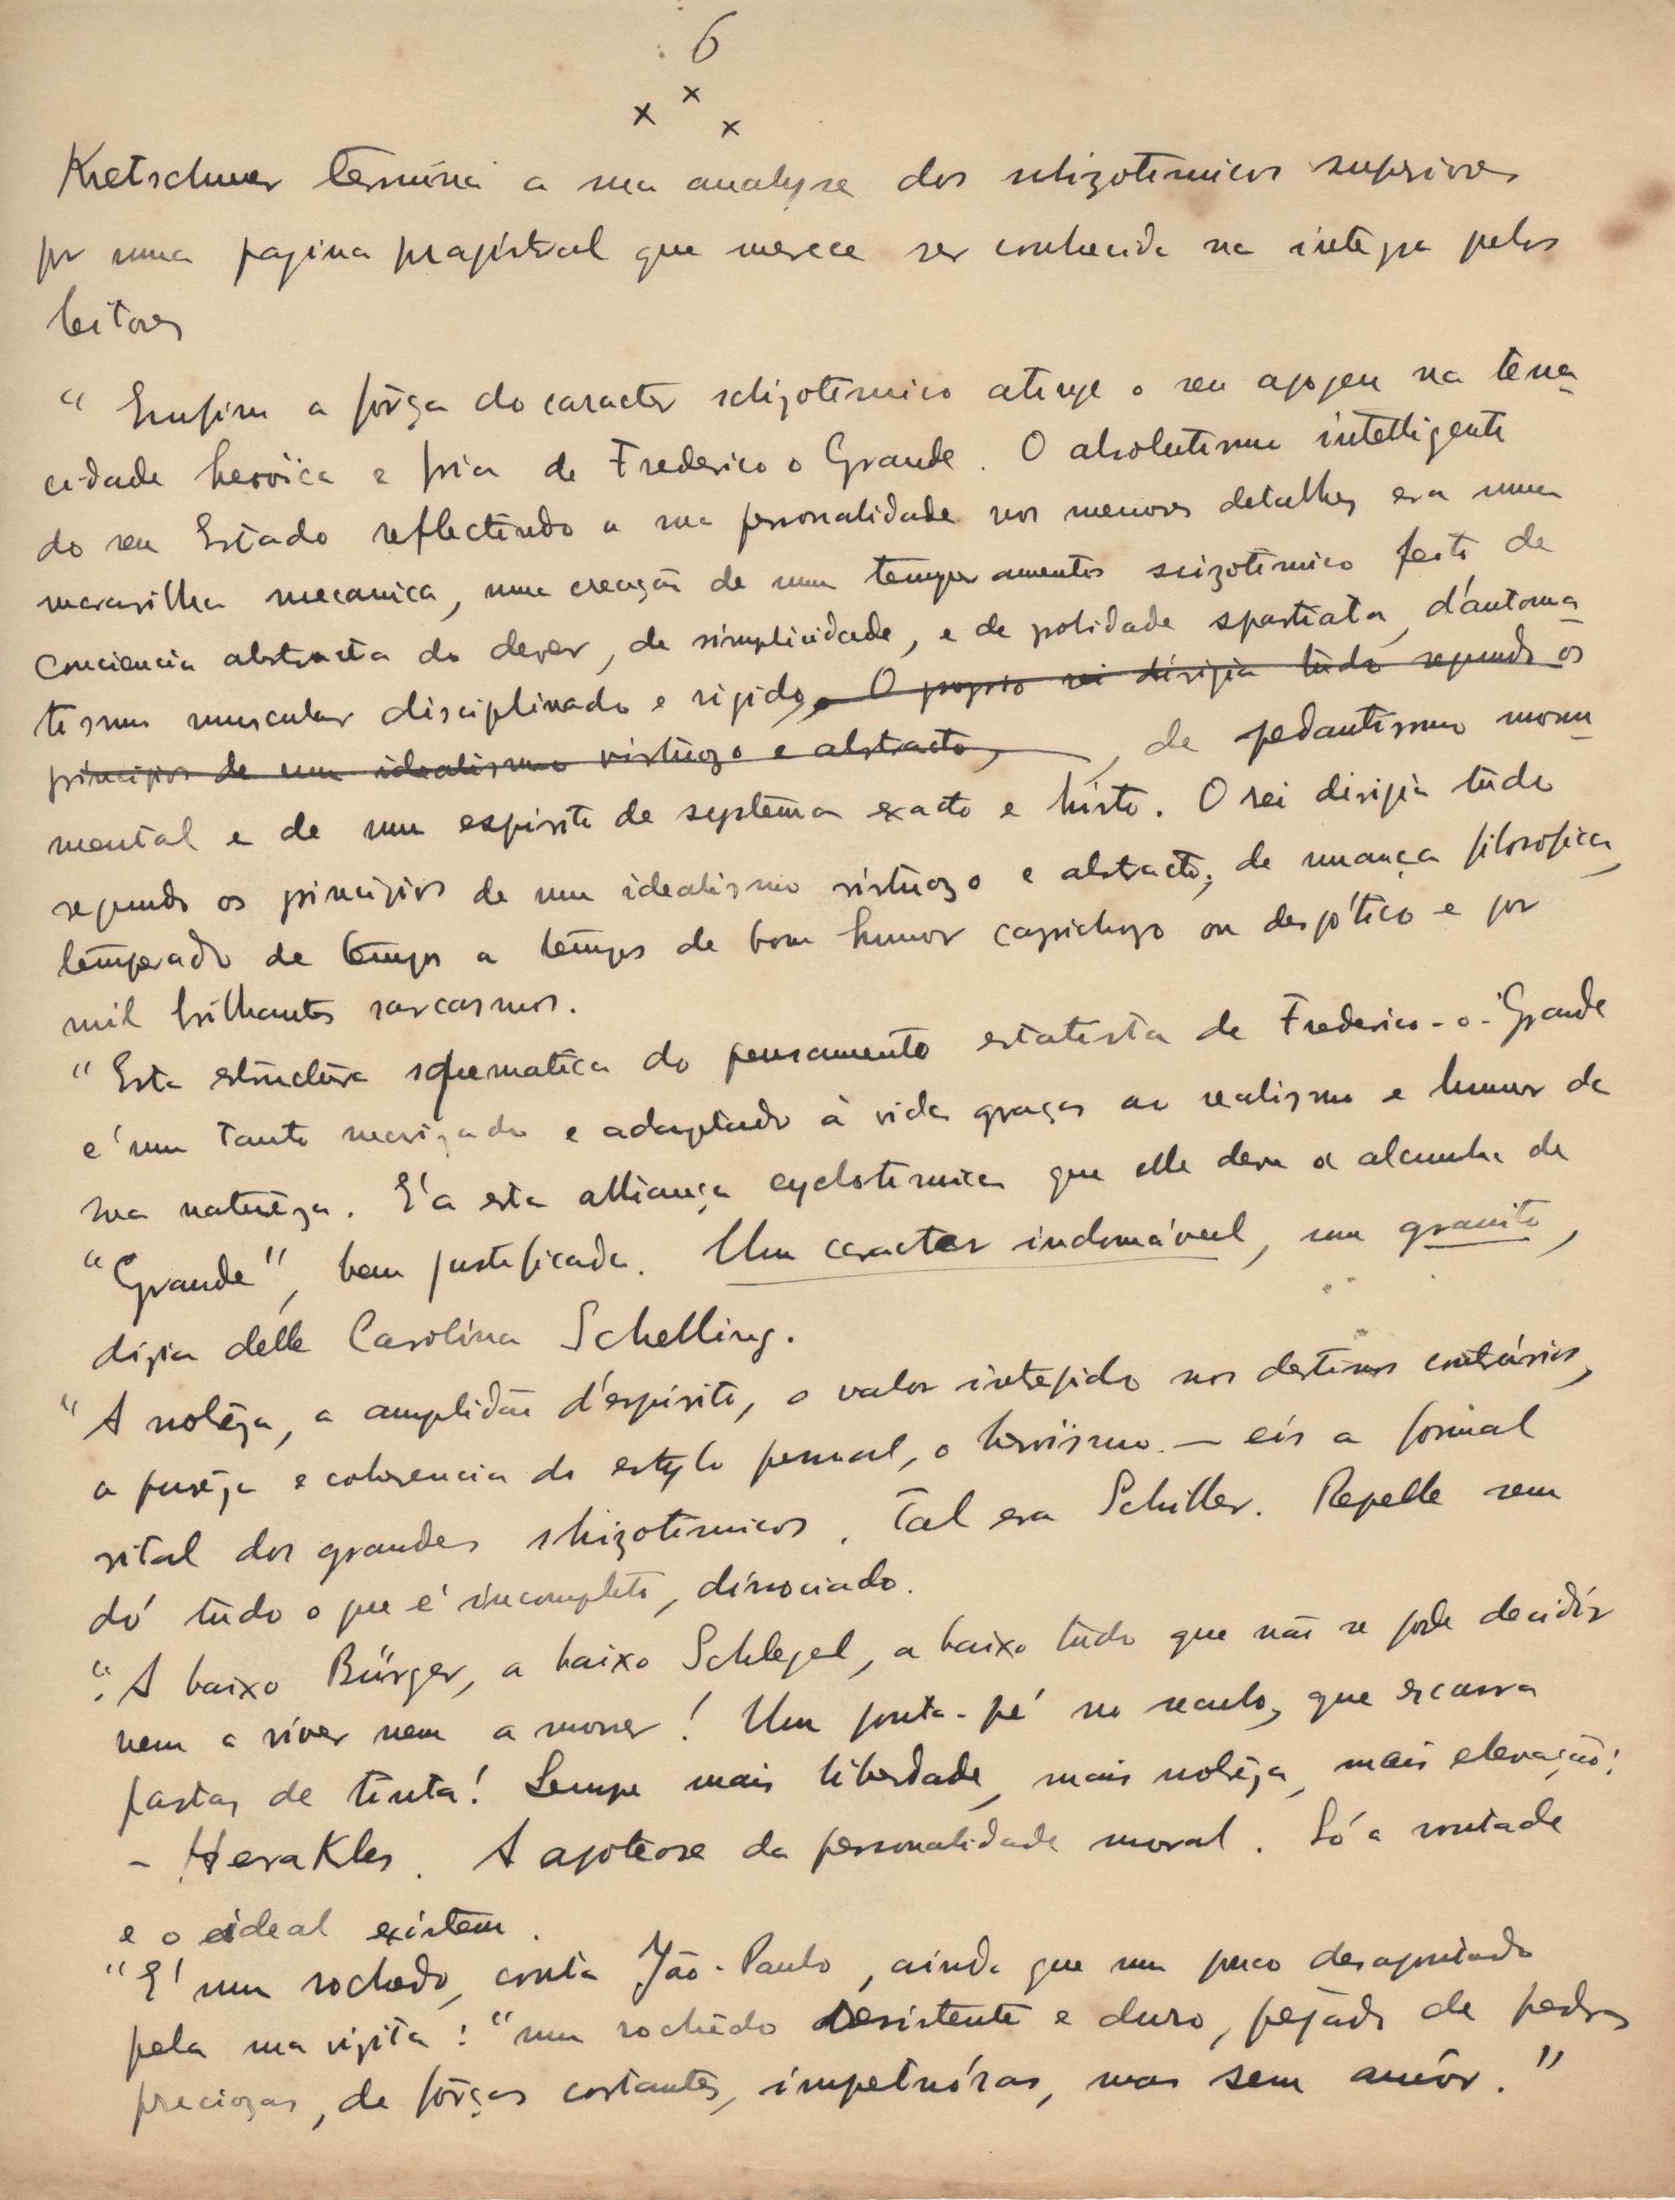 6
x x x
Kretschmer termina a sua analyse dos schizotimicos superiores
por uma pagina magistral que merece ser conhecida na integra pelos
leitores
" Emfim a fôrça do caracter schizotimico atinje o seu apojeu na tena-
cidade heroïca e fria de Frederico o Grande. O absolutismo intelligente
do seu Estado reflectindo a sua personalidade nos menores detalhes era uma
maravilha mecanica, uma creação de um temperamento scizotimico feito de
conciencia abstracta do dever, de simplicidade, e de polidade spartiata, d'automa-
tismo muscular disciplinado e rijido. O proprio rei dirigia tudo segundo os
principios de um idealismo virtuozo e abstracto, , de pedantismo monu-
mental e de um espirito de systema exacto e hirto. O rei dirijia tudo
segundo os principios de um idealismo virtuozo e abstracto, de nuança filosofica,
temperado de tempos a tempos de bom humor caprichozo ou despótico e por
mil brilhantes sarcasmos.
" Esta estructura squematica do pensamento estatista de Frederico-o-Grande
e' um tanto e adaptado à vida graças ao realismo e humor da
sua naturêza. E' a esta alliança cyclotimica que elle deve a alcunha de
"Grande", bem justificada. Um caracter indomável, um granito,
dizia delle Carolina Schelling.
" A nobrêza, a amplidão d'espirito, o valor intrepido nos destinos contrários,
a purêza e coherencia do estylo pessoal, o heroïsmo. — eis a formal
vital dos grandes shizotimicos. Tal era Schiller. Repelle sem
dó tudo o que é incompleto, dissociado.
" A baixo Bürger, a baixo Schlegel, a baixo tudo que não se pode decidir
nem a viver nem a morrer! Um ponta-pé no seculo, que escarra
pastas de tinta! Sempre mais liberdade, mais nobrêza, mais elevação!
- Herakles. A apoteose da personalidade moral. Só a vontade
e o ideal existem.
" E' um rochedo, conta João-Paulo, ainda que um pouco desapontado
pela sua vizita: "um rochêdo resistente e duro, pejado de pedras
preciozas, de fôrças cortantes, impetuósas, mas sem amôr."